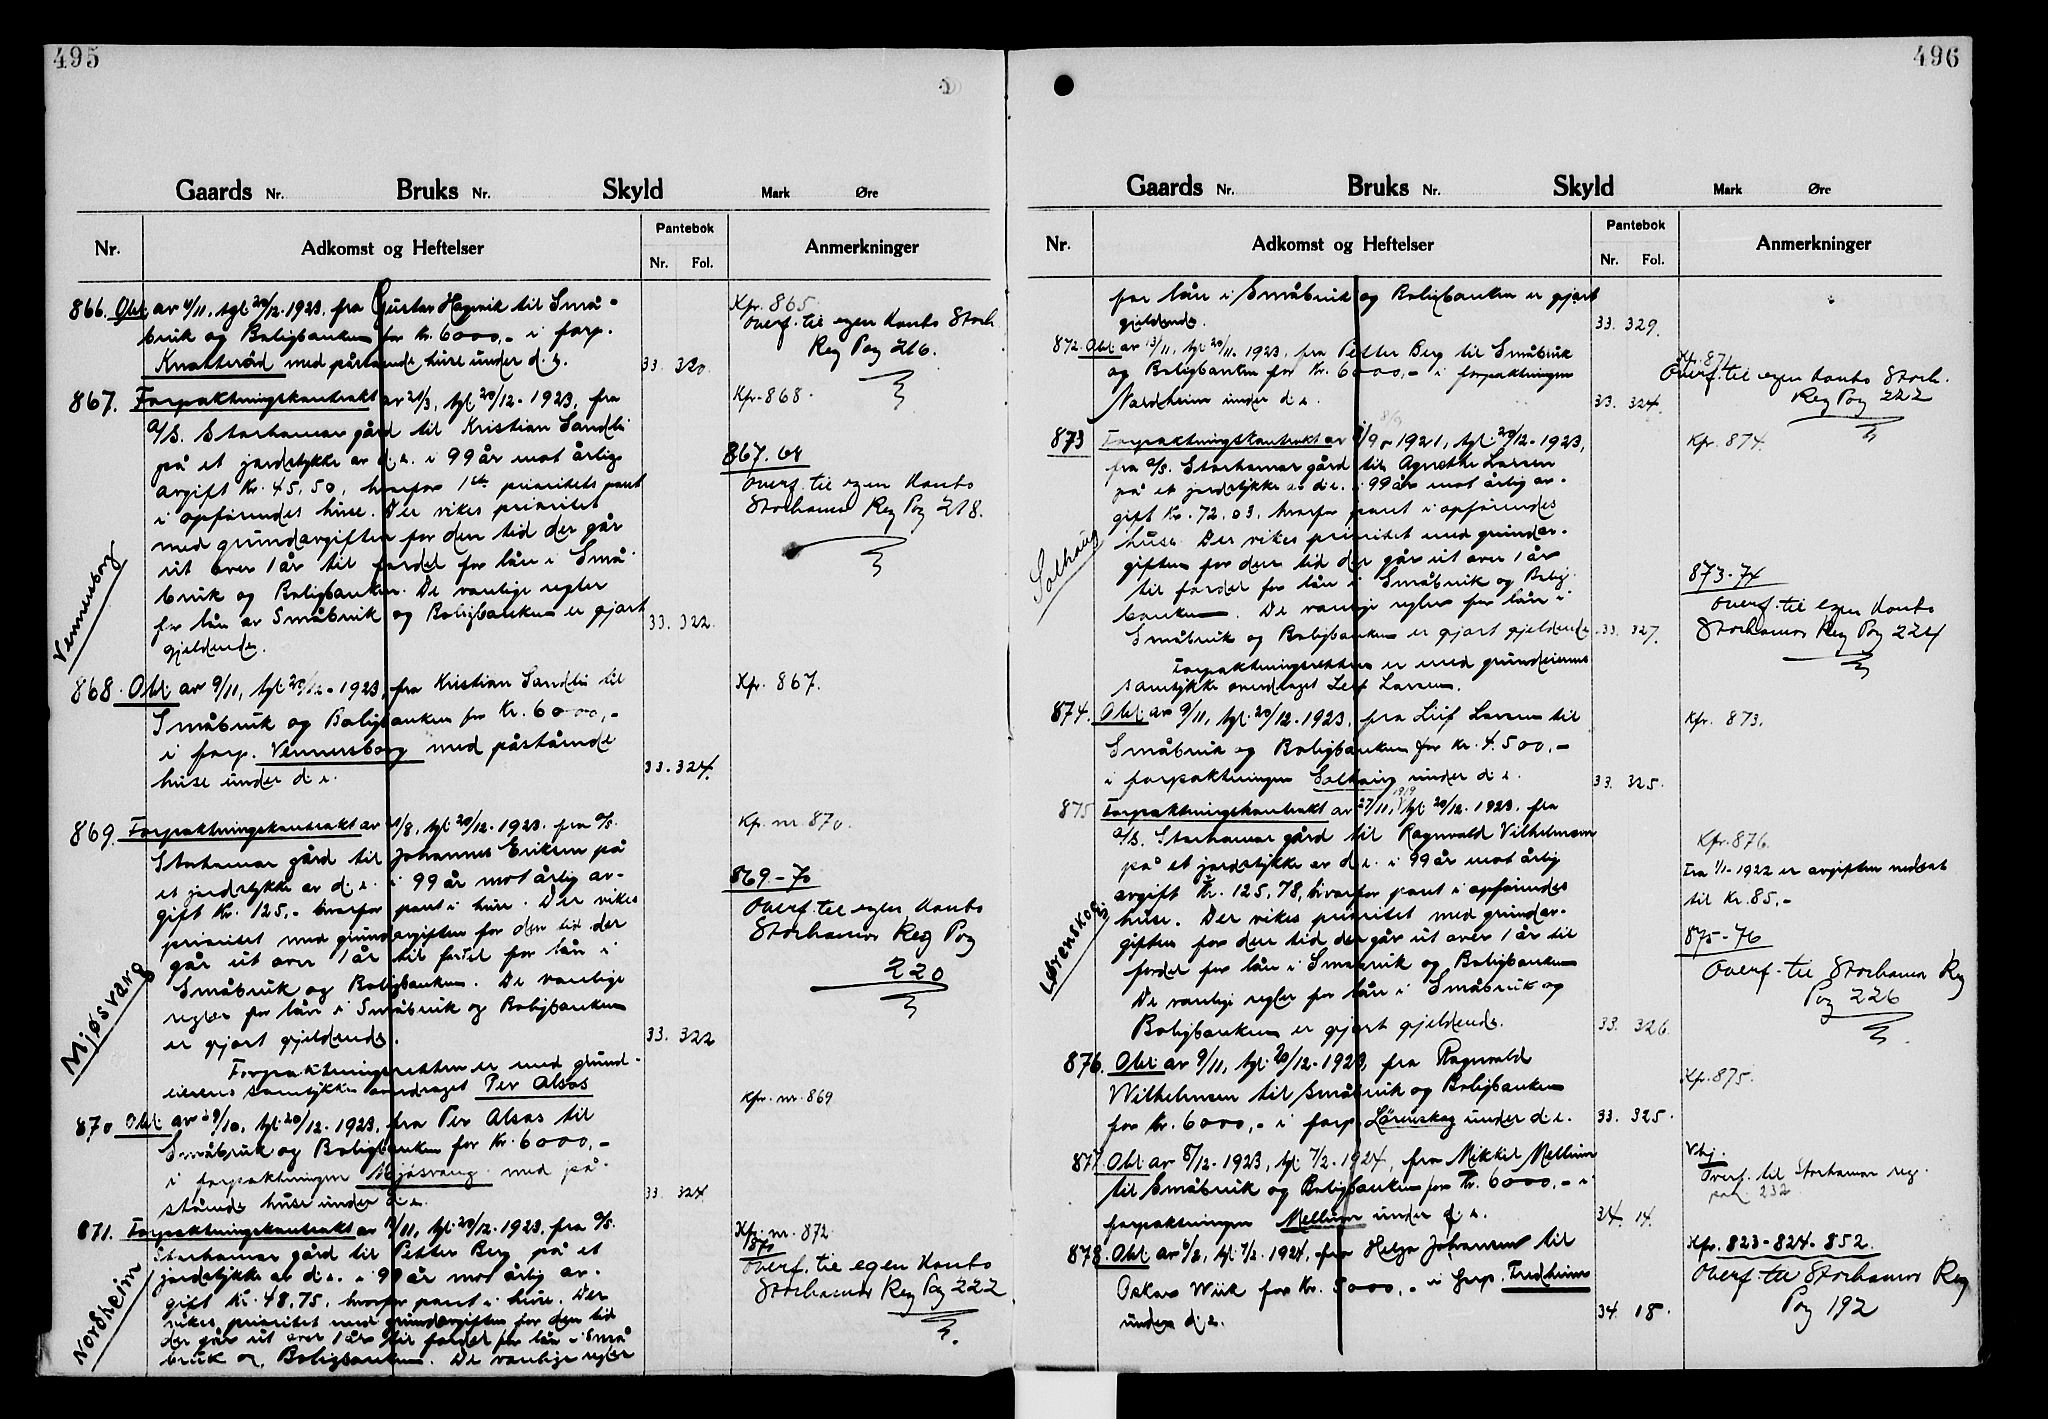 495
Gaards Nr. Bruks Nr. Skyld Mark Øre
Nr. Adkomst og Heftelser Pantebok Nr. Fol. Anmerkninger
866. Obl. av 9/11, tgl. 20/12-1923, fra Gustav Hagevik til Små-
bruk og Boligbanken for kr. 6000,- i forp.
Knatterud med påstående huse under d. e. 33. 320.
Kfr. 865.
Overf. til egen Konto Storh.
Reg Pag 216.
867. Forpaktningskontrakt av 21/3, tgl. 20/12-1923, fra
A/S. Storhamar gård til Kristian Sandli
på et jordstykke av d. e. i 99 år mot årlig
avgift Kr. 45,50, hvorfor 1ste prioritets pant
i opførendes huse. Der vikes prioritet
med grundavgiften for den tid der går
ut over 1 år til fordel for lån i Små-
bruk og Boligbanken. De vanlige regler
for lån av Småbruk og Boligbanken er gjort 33. 322.
gjeldende.
Vennersborg
Kfr. 868.
867. 68
Overf. til egen Konto
Storhamar Reg Pag 218.
868. Obl. av 9/11, tgl. 20/12-1923, fra Kristian Sandli til
Småbruk og Boligbanken for Kr. 6000,-
i forp. Vennersborg med påstående
huse under d. e. 33. 324.
Kfr. 867.
869. Forpaktningskontrakt av /8, tgl. 20/12-1923. fra A/S.
Storhamar gård til Johannes Eriksen på
et jordstykke av d. e. i 99 år mot årlig av-
gift Kr. 125,- hvorfor pant i huse. Der vikes
prioritet med grundavgiften for den tid der
går ut over 1 år til fordel for lån i
Småbruk og Boligbanken. De vanlige
regler for lån i Småbruk og Boligbanken
er gjort gjeldende. 33. 322
Forpaktningsretten er med grund-
eierens samtykke overdraget Per Alsos
Mjøsvang
Kfr. nr. 870.
869-70
Overf. til egen Konto
Storhamar Reg Pag
220
870 Obl. av 29/10, tgl. 20/12-1923, fra Per Alsos til
Småbruk og Boligbanken for Kr. 6000,-
i forpaktningen Mjøsvang med på-
stående huse under d. e. 33. 324.
Kfr. nr. 869
871. Forpaktningskontrakt av /11, tgl. 20/12-1923. fra A/S.
Storhamar gård til Petter Berg på et
jordstykke av d. e. i 99 år mot årlig av-
gift kr. 48.75, hvorfor pant i huse. Der
vikes prioritet med grundavgiften for den tid
der går ut over 1 år til fordel for lån i Små-
bruk og Boligbanken. De vanlige regler
Nordheim
Kfr. nr. 872.
871
Overf. til egen Konto
Storhamar Reg Pag 222
496
Gaards Nr. Bruks Nr. Skyld Mark Øre
Nr. Adkomst og Heftelser Pantebok Nr. Fol. Anmerkninger
for lån i Småbruk og Boligbanken er gjort
gjeldende. 33. 329.
872. Obl. av 13/11, tgl. 20/12-1923, fra Petter Berg til Småbruk
og Boligbanken for Kr. 6000,- i forpaktningen
Nordheim under d. e. 33. 324.
Kfr. 871
Overf. til egen Konto Storh.
Reg Pag 222
873 Forpaktningskontrakt av 8/9-1921, tgl. 20/12-1923,
fra A/S. Storhamar gård til Agnethe Larsen
på et jordstykke av d. e. i 99 år mot årlig av-
gift Kr. 72.03, hvorfor pant i opførendes
huse. Der vikes prioritet med grundav-
giften for den tid der går ut over 1 år
til fordel for lån i Småbruk og Bolig-
banken. De vanlige regler for lån i
Småbruk og Boligbanken er gjort gjeldende. 33. 327.
Forpaktningsretten er med grundeierens
samtykke overdraget Leif Larsen.
Solhaug
Kfr. 874.
873-74
Overf. til egen Konto
Storhamar Reg Pag 224
874. Obl. av 9/11, tgl. 20/12-1923, fra Leif Larsen til
Småbruk og Boligbanken for kr. 4.500,-
i forpaktningen Solhaug under d. e. 33. 325.
Kfr. 873.
875 Forpaktningskontrakt av 27/11, 1919 tgl. 20/12-1923. fra
A/S. Storhamar gård til Ragnvald Vilhelmsen
på et jordstykke av d. e. i 99 år mot årlig
avgift Kr. 125,78, hvorfor pant i opførendes
huse. Der vikes prioritet med grundav-
giften for den tid der går ut over 1 år til
fordel for lån i Småbruk og Boligbanken
De vanlige regler for lån i Småbruk og
Boligbanken er gjort gjeldende. 33. 326.
Lørenskog
Kfr. 876.
Fra 1/1-1922 er avgiften nedsat
til Kr. 85,-
875-76
Overf. til Storhamar Reg
Pag 226
876. Obl. av 9/11, tgl. 20/12-1923, fra Ragnvald
Wilhelmsen til Småbruk og Boligbanken
for Kr. 6000,- i forp. Lørenskog under d. e. 33. 325.
Kfr. 875.
877. Obl. av 8/12-1923, tgl. 7/2-1924, fra Mikkel Mellum
til Småbruk og Boligbanken for Kr. 6000,- i
forpaktningen Mellum under d. e. 34. 14.
Overf. til Storhamar reg.
pag. 232
878. Obl. av 6/2, tgl. 7/2-1924, fra Helga Johansen til
Oskar Wiik for Kr. 5000,- i forp. Fredheim
under d. e. 34. 18.
Kfr. 823-824-852.
Overf. til Storhamar Reg
Pag 192